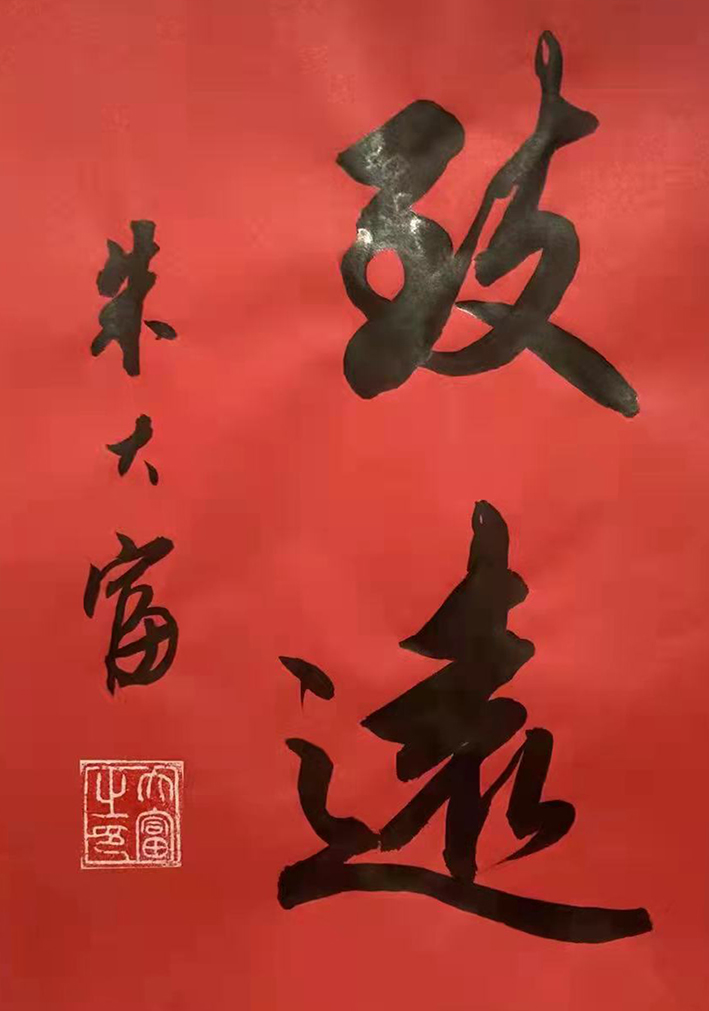 致遠
朱大富
大富之印